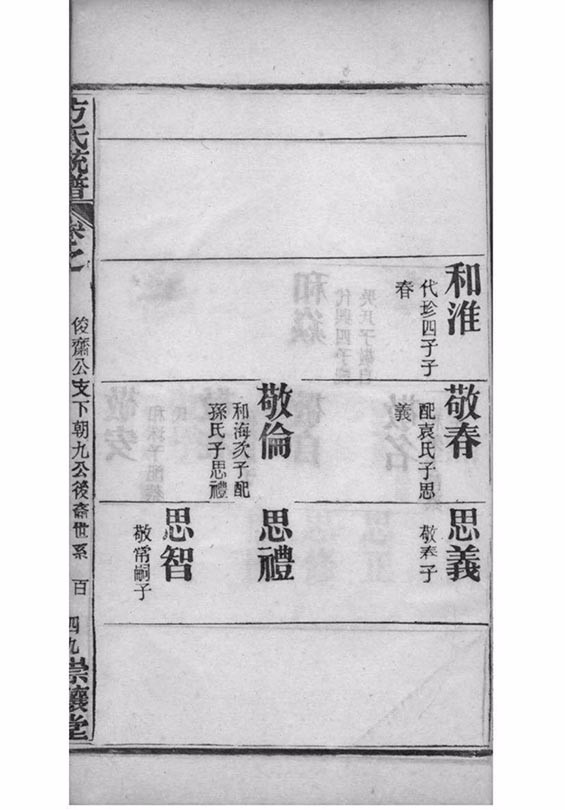 和淮
代珍四子子
春
敬春
配袁氏子思
義
敬倫
和海次子配
孫氏子思禮
思義
敬春子
思禮
思智
敬常嗣子
方氏統譜
卷之
俊齋公支下朝九公後裔世系
百四九
崇讓堂